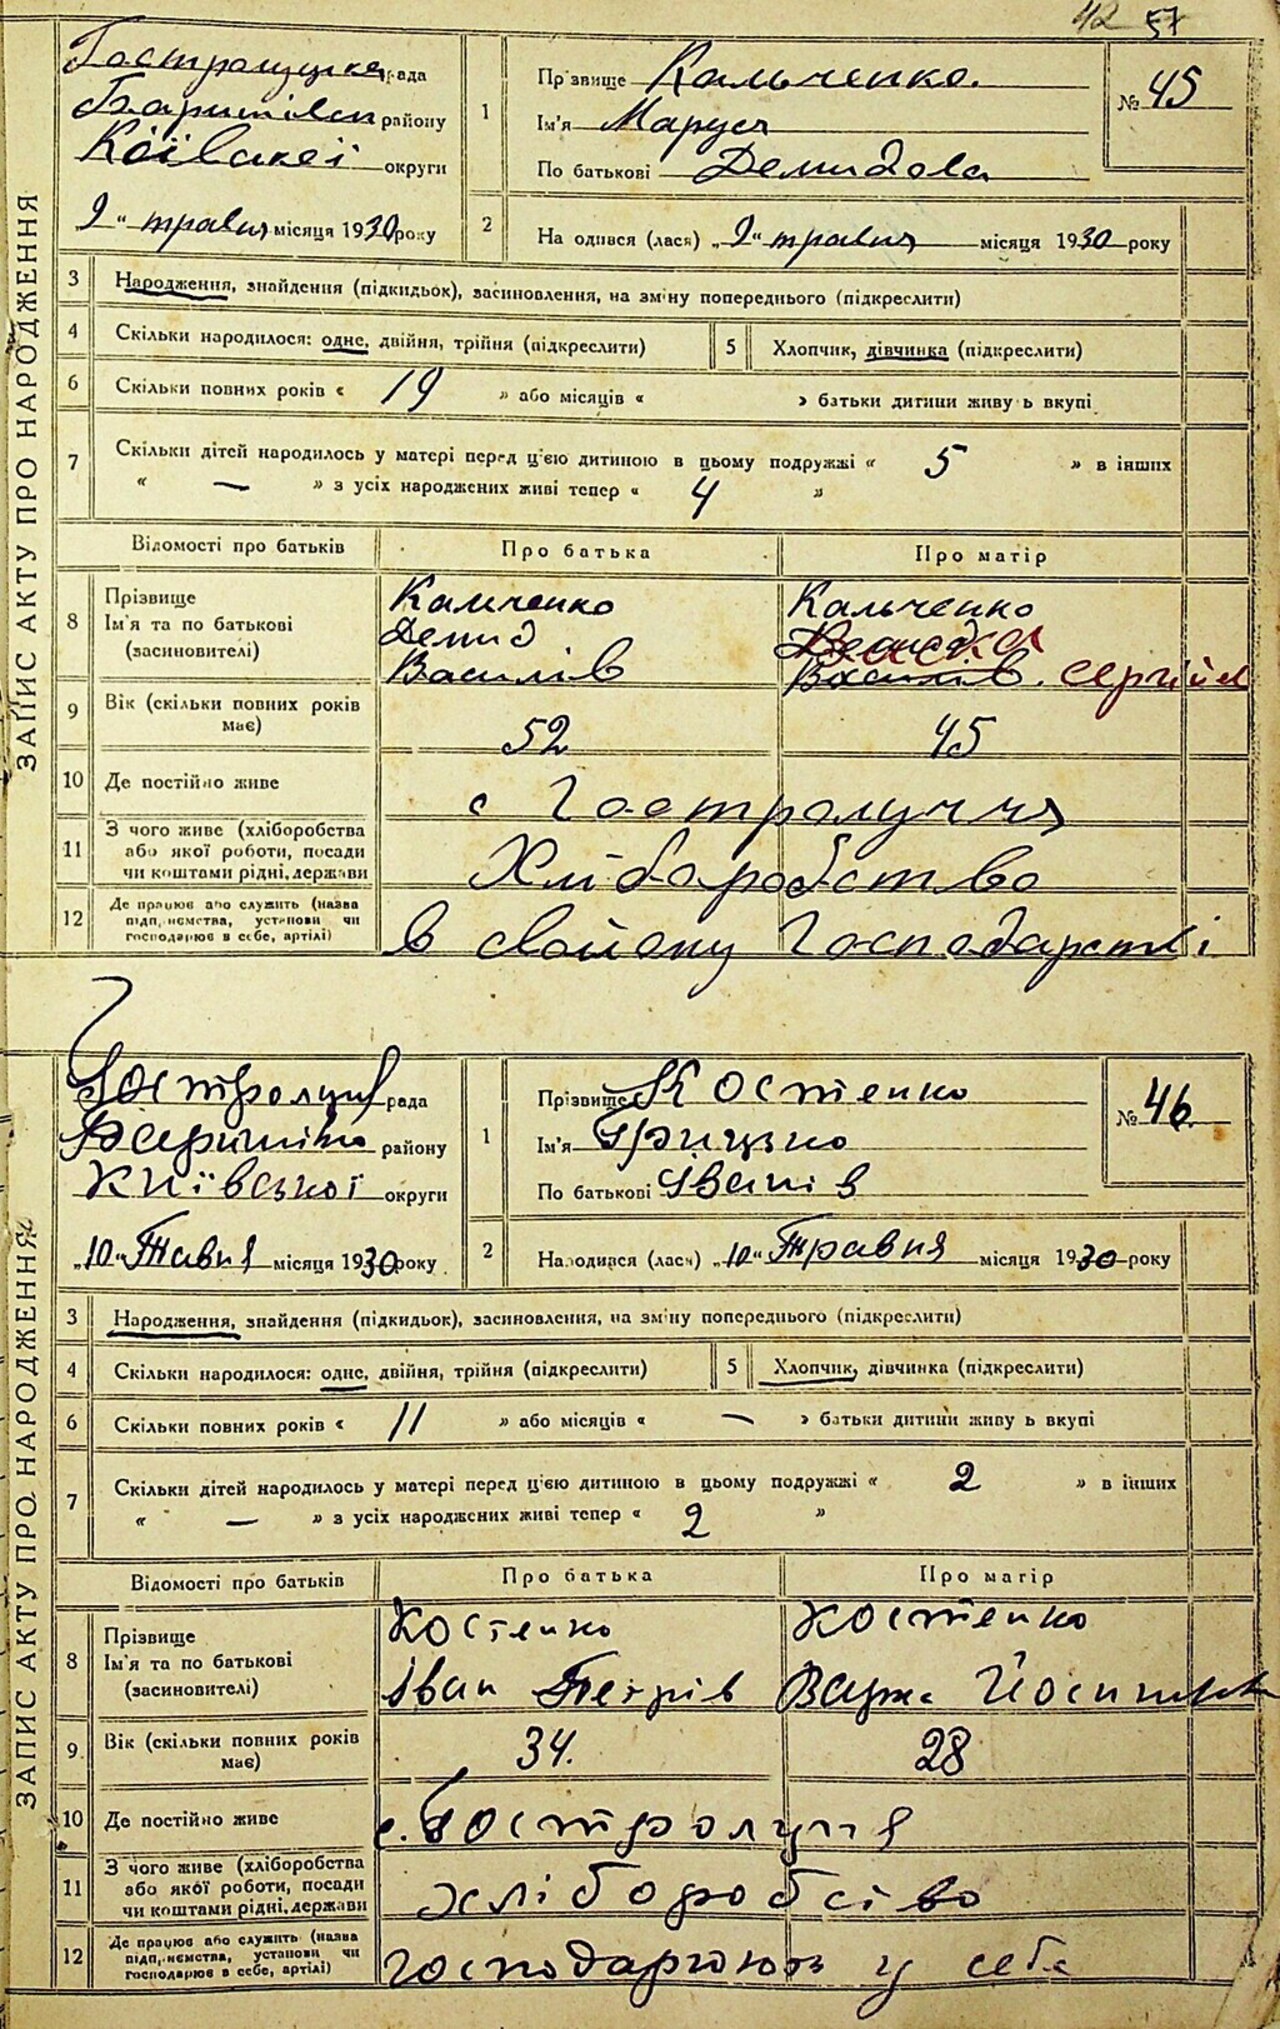 42 57
ЗАПИС АКТУ ПРО НАРОДЖЕННЯ
рада
району
округи
9" травня місяця 1930 року
1
Прізвище Кальченко.
Ім'я Маруся
По батькові Демидова
№ 45
2
На одився (лася) „9" травня місяця 1930 року
3 Народження, знайдення (підкидьок), засиновлення, на зміну попереднього (підкреслити)
4 Скільки народилося: одне, двійня, трійня (підкреслити)
5 Хлопчик, дівчинка (підкреслити)
6 Скільки повних років « 19 » або місяців « » батьки дитини живу ь вкупі
7 Скільки дітей народилось у матері перед ц'єю дитиною в цьому подружжі « 5 » в інших
« — » з усіх народжених живі тепер « 4 »
Відомості про батьків Про батька Про матір
8 Прізвище
Ім'я та по батькові
(засиновителі)
Камченко
Демид
Василів
Кальченко
Василів. Сергійл
9 Вік (скільки повних років
має)
52 45
10 Де постійно живе
с Гостролуччя
11 З чого живе (хліборобства
або якої роботи, посади
чи коштами рідні, держави
Хліборобство
12 Де працює або служить (назва
підп, иємства, установи чи
господарює в себе, артілі)
в свойому господарстві
ЗАПИС АКТУ ПРО НАРОДЖЕННЯ
рада
району
Київської округи
„10" Тавня місяця 1930 року
1
Прізвище Костенко
Ім'я Грицько
По батькові Іванів
№ 46.
2
Народився (лася) „10" Травня місяця 1930 року
3 Народження, знайдення (підкидьок), засиновлення, на зміну попереднього (підкреслити)
4 Скільки народилося: одне, двійня, трійня (підкреслити)
5 Хлопчик, дівчинка (підкреслити)
6 Скільки повних років « 11 » або місяців « — » батьки дитини живу ь вкупі
7 Скільки дітей народилось у матері перед ц'єю дитиною в цьому подружжі « 2 » в інших
« — » з усіх народжених живі тепер « 2 »
Відомості про батьків Про батька Про матір
8 Прізвище
Ім'я та по батькові
(засиновителі)
Костенко
Іван Петрів
Костенко
9. Вік (скільки повних років
має)
34. 28
10 Де постійно живе
с. Гостролуччя
11 З чого живе (хліборобства
або якої роботи, посади
чи коштами рідні, держави
хліборобство
12 Де працює або служить (назва
підп, иємства, установи чи
господарює в себе, артілі)
господарюють у себе